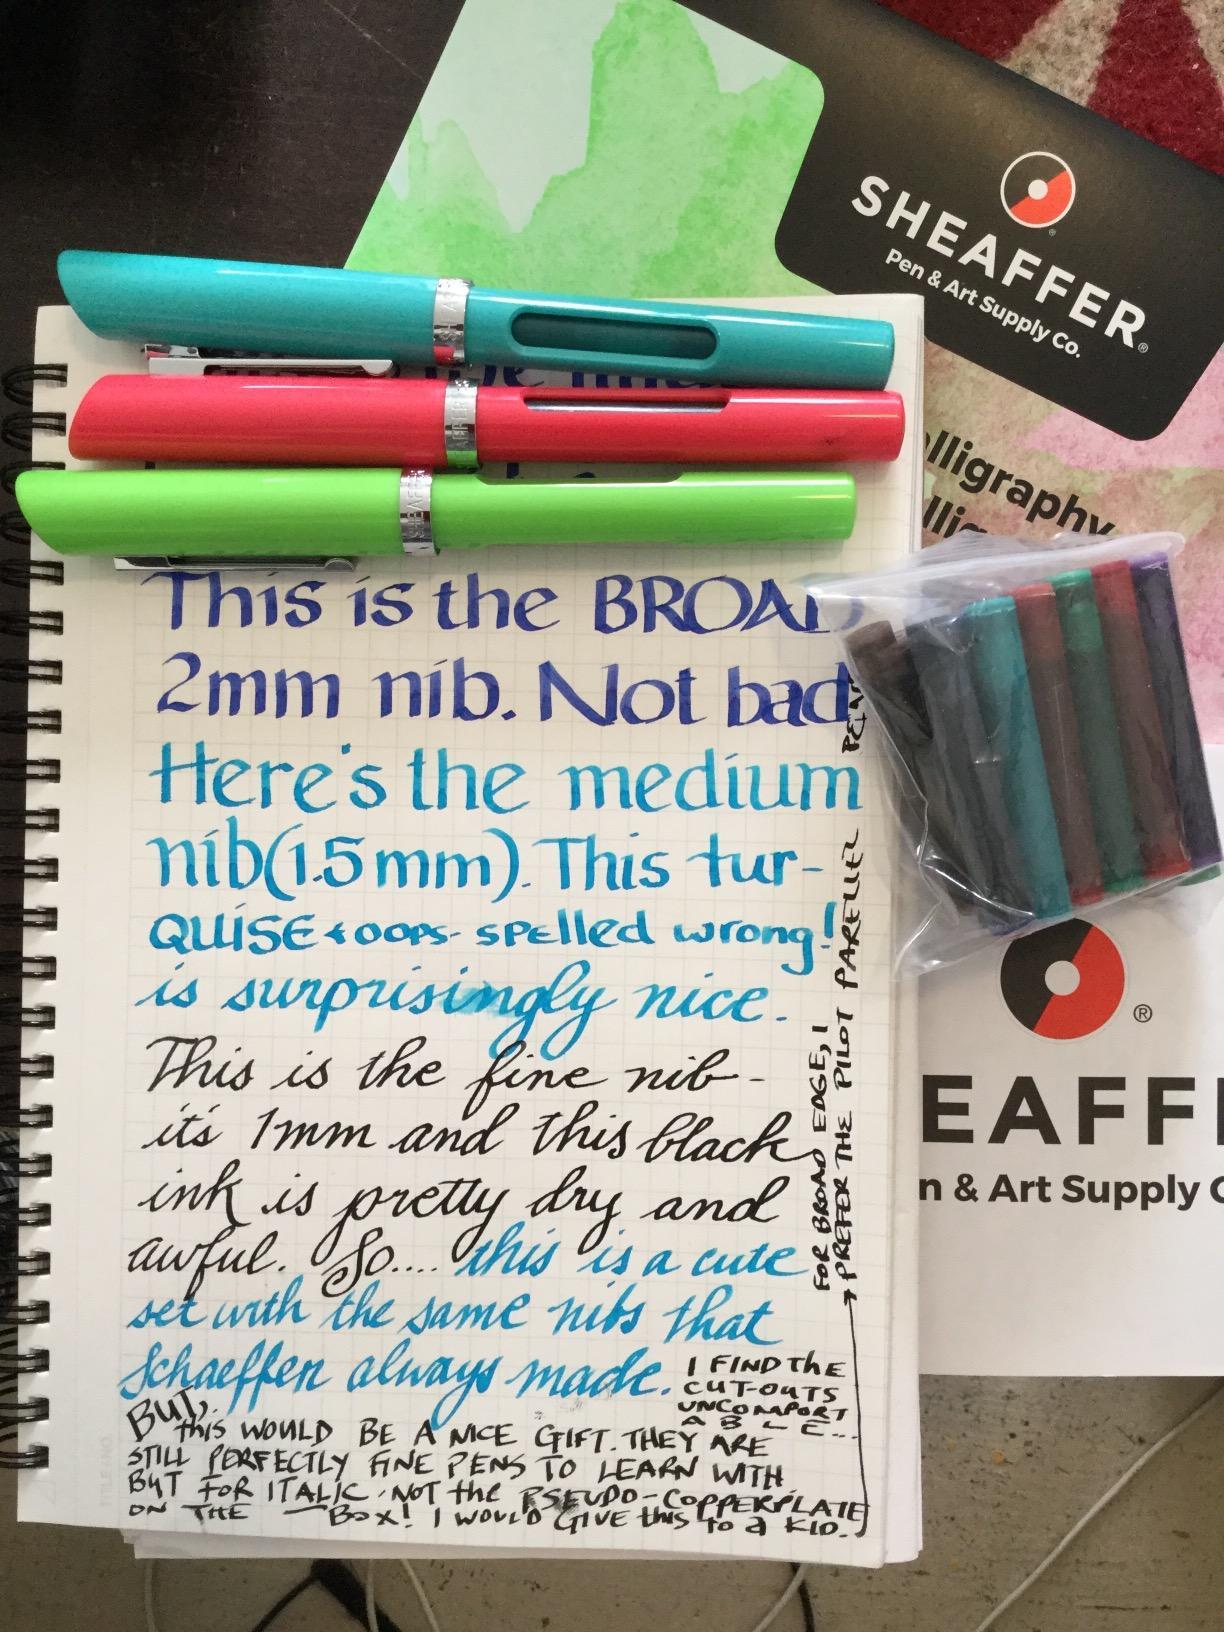 SHEAFFER®
Pen & Art Supply Co.
alligraphy
SHEAFFER
SHEAFFER
This is the BROAD
2mm nib. Not bad
Here's the medium
nib (1.5mm). This tur-
QUISE & oops- spelled wrong!
is surprisingly nice.
This is the fine nib -
it's 1mm and this black
ink is pretty dry and
awful. So.... this is a cute
set with the same nibs that
Schaeffer always made.
I FIND the
CUT-OUTS
UNCOMFORT
ABLE...
BUT,
this WOULD BE A NICE GIFT. THEY ARE
STILL PERFECTLY FINE PENS TO LEARN WITH
BUT FOR ITALIC. NOT the PSEUDO-COPPERPLATE
ON THE BOX! I WOULD GIVE this to a KID.
FOR BROAD EDGE, I
PREFER THE PILOT PARELLEL PEN
®
EAFF
n & Art Supply C